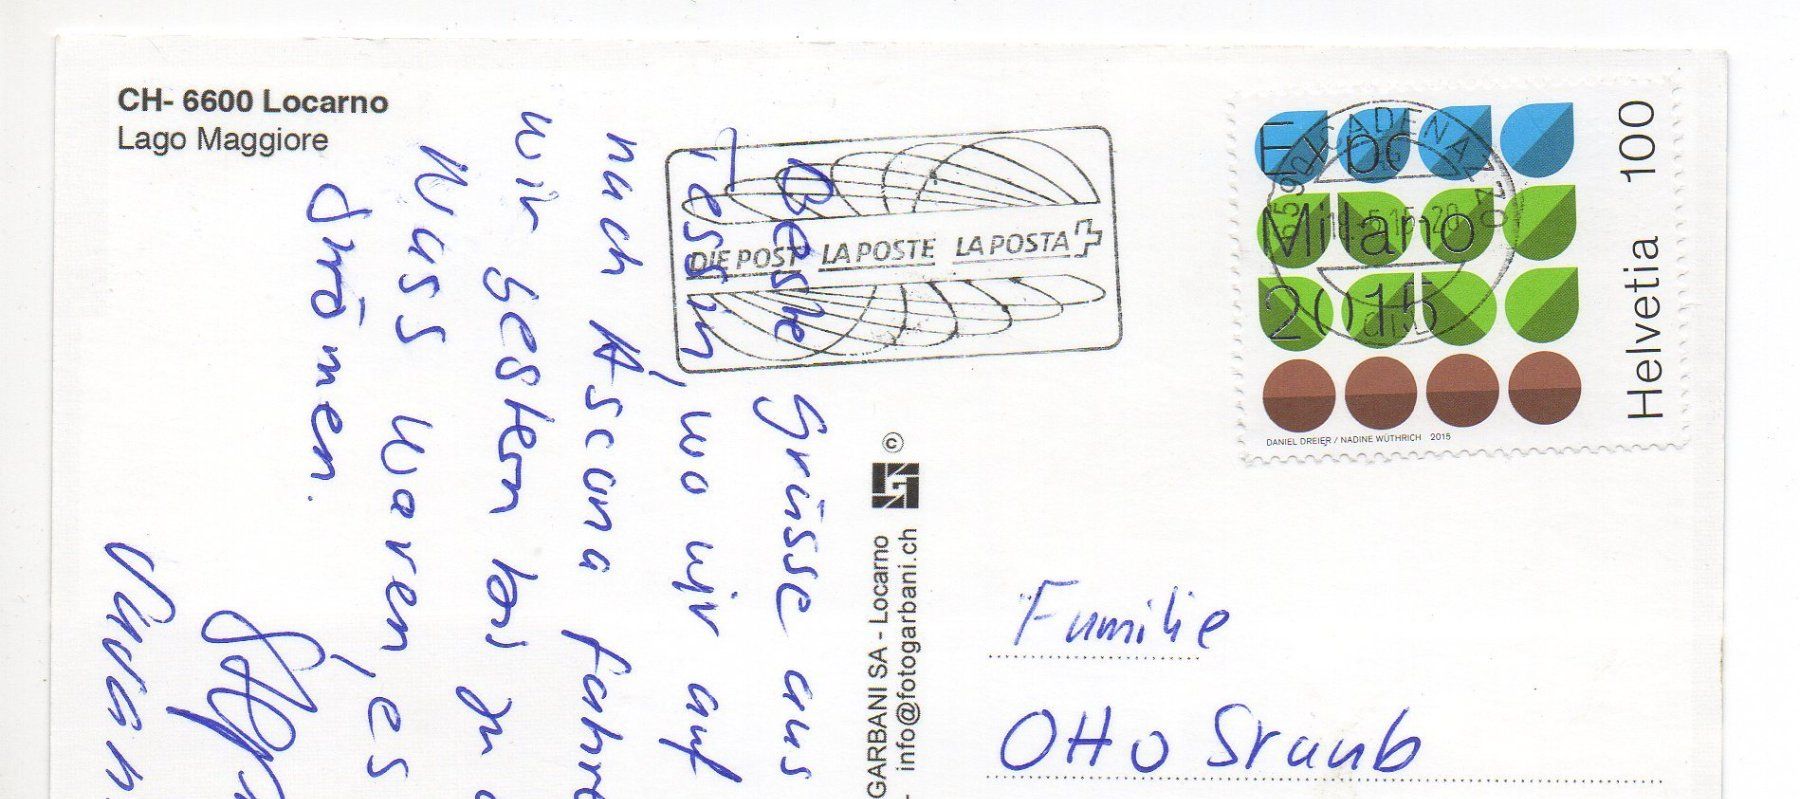 CH- 6600 Locarno
Lago Maggiore
Beste Grüsse aus
Tessin, wo wir auf
nach Ascona fahre
wir gestern bei
Nass waren, es
strömen.
DIE POST LA POSTE LA POSTA
6590 CADENAZZO
Expo
Milano
2015
Helvetia 100
DANIEL DREIER / NADINE WÜTHRICH 2015
©
GARBANI SA - Locarno
info@fotogarbani.ch
Familie
Otto Staub